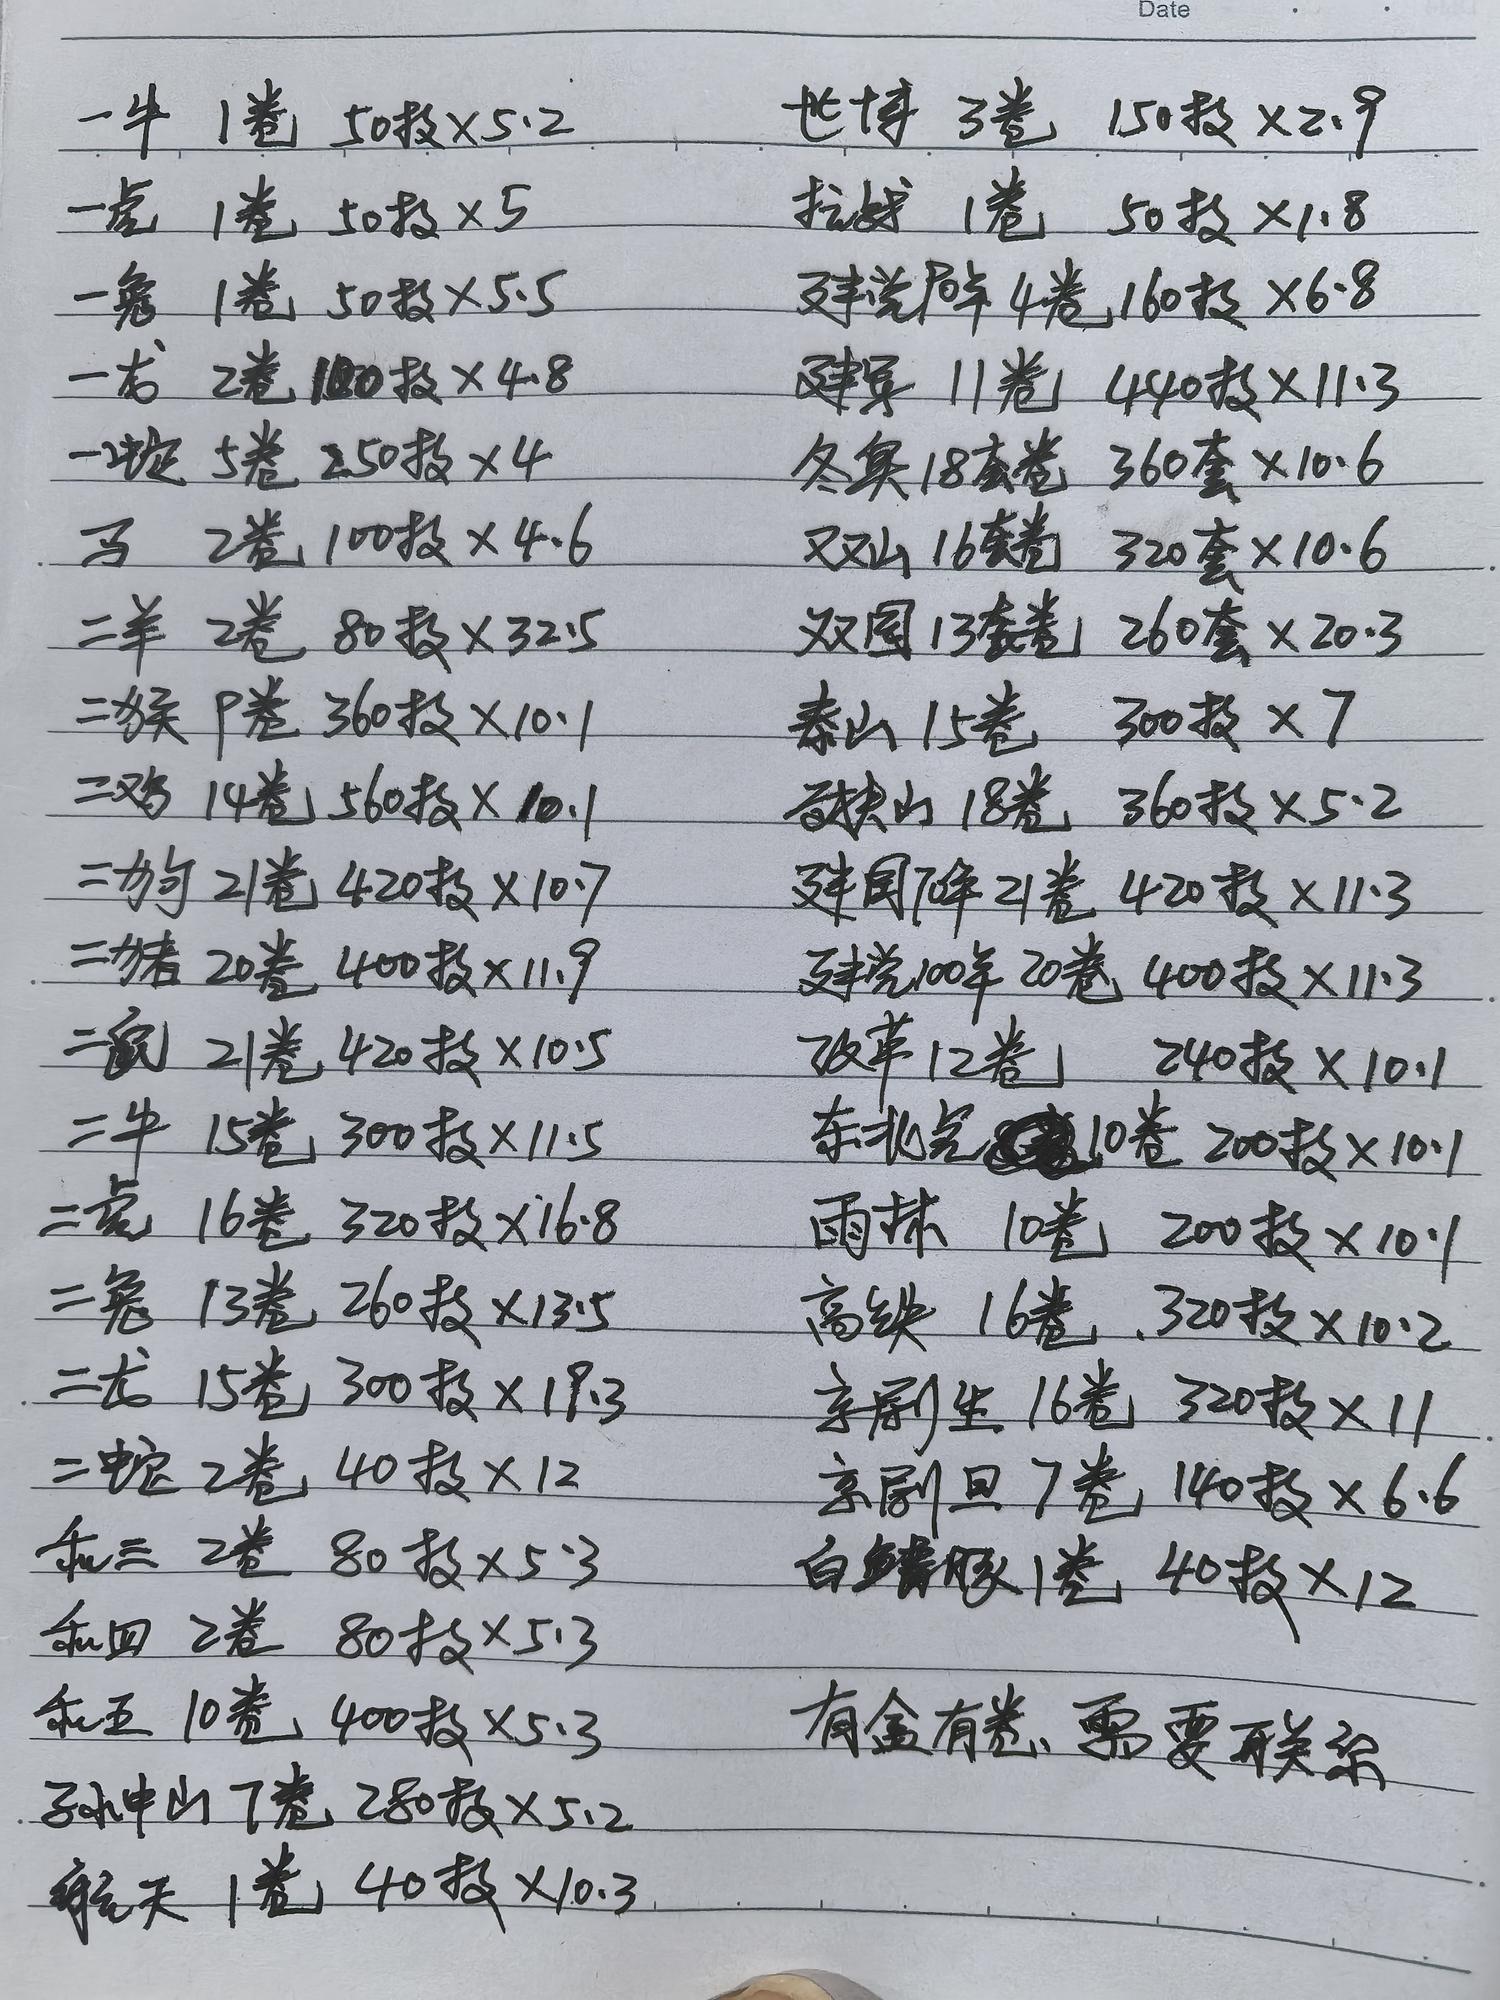 Date
一牛 1卷 50枚×5.2
一虎 1卷 50枚×5
一兔 1卷 50枚×5.5
一龙 2卷 100枚×4.8
一蛇 5卷 250枚×4
马 2卷 100枚×4.6
二羊 2卷 80枚×32.5
二猴 9卷 360枚×10.1
二鸡 14卷 560枚×10.1
二狗 21卷 420枚×10.7
二猪 20卷 400枚×11.9
二鼠 21卷 420枚×10.5
二牛 15卷 300枚×11.5
二虎 16卷 320枚×16.8
二兔 13卷 260枚×13.5
二龙 15卷 300枚×19.3
二蛇 2卷 40枚×12
和三 2卷 80枚×5.3
和四 2卷 80枚×5.3
和五 10卷 400枚×5.3
孙中山 7卷 280枚×5.2
航天 1卷 40枚×10.3
世博 3卷 150枚×2.9
抗战 1卷 50枚×1.8
建党90年 4卷 160枚×6.8
建军 11卷 440枚×11.3
冬奥 18套卷 360套×10.6
双山 16套卷 320套×10.6
双国 13套卷 260套×20.3
泰山 15卷 300枚×7
武夷山 18卷 360枚×5.2
建国70年 21卷 420枚×11.3
建党100年 20卷 400枚×11.3
改革 12卷 240枚×10.1
东北虎 10卷 200枚×10.1
雨林 10卷 200枚×10.1
高铁 16卷 320枚×10.2
京剧生 16卷 320枚×11
京剧旦 7卷 140枚×6.6
白鳍豚 1卷 40枚×12
有盒有卷、需要联系